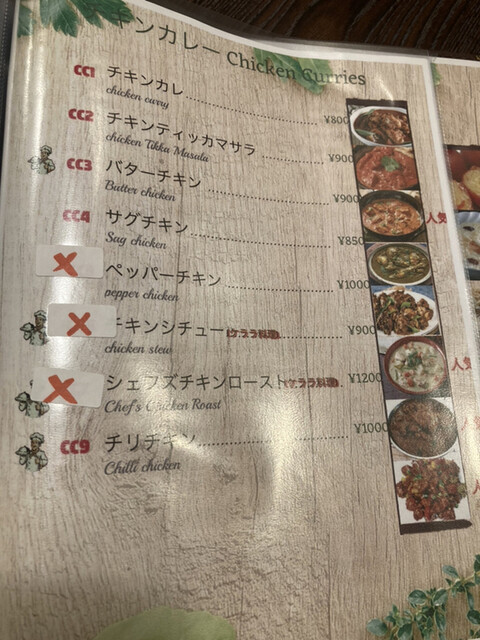 ンカレー Chicken Curries
CC1 チキンカレ ¥800
chicken curry
CC2 チキンティッカマサラ ¥900
chicken Tikka Masala
CC3 バターチキン ¥900
Butter chicken
CC4 サグチキン ¥850
Sag chicken
X ペッパーチキン ¥1000
pepper chicken
X チキンシチュー(ケララ料理) ¥900
chicken stew
X シェフズチキンロースト(ケララ料理) ¥1200
Chef's Chicken Roast
CC9 チリチキン ¥1000
Chilli chicken
人気
人気